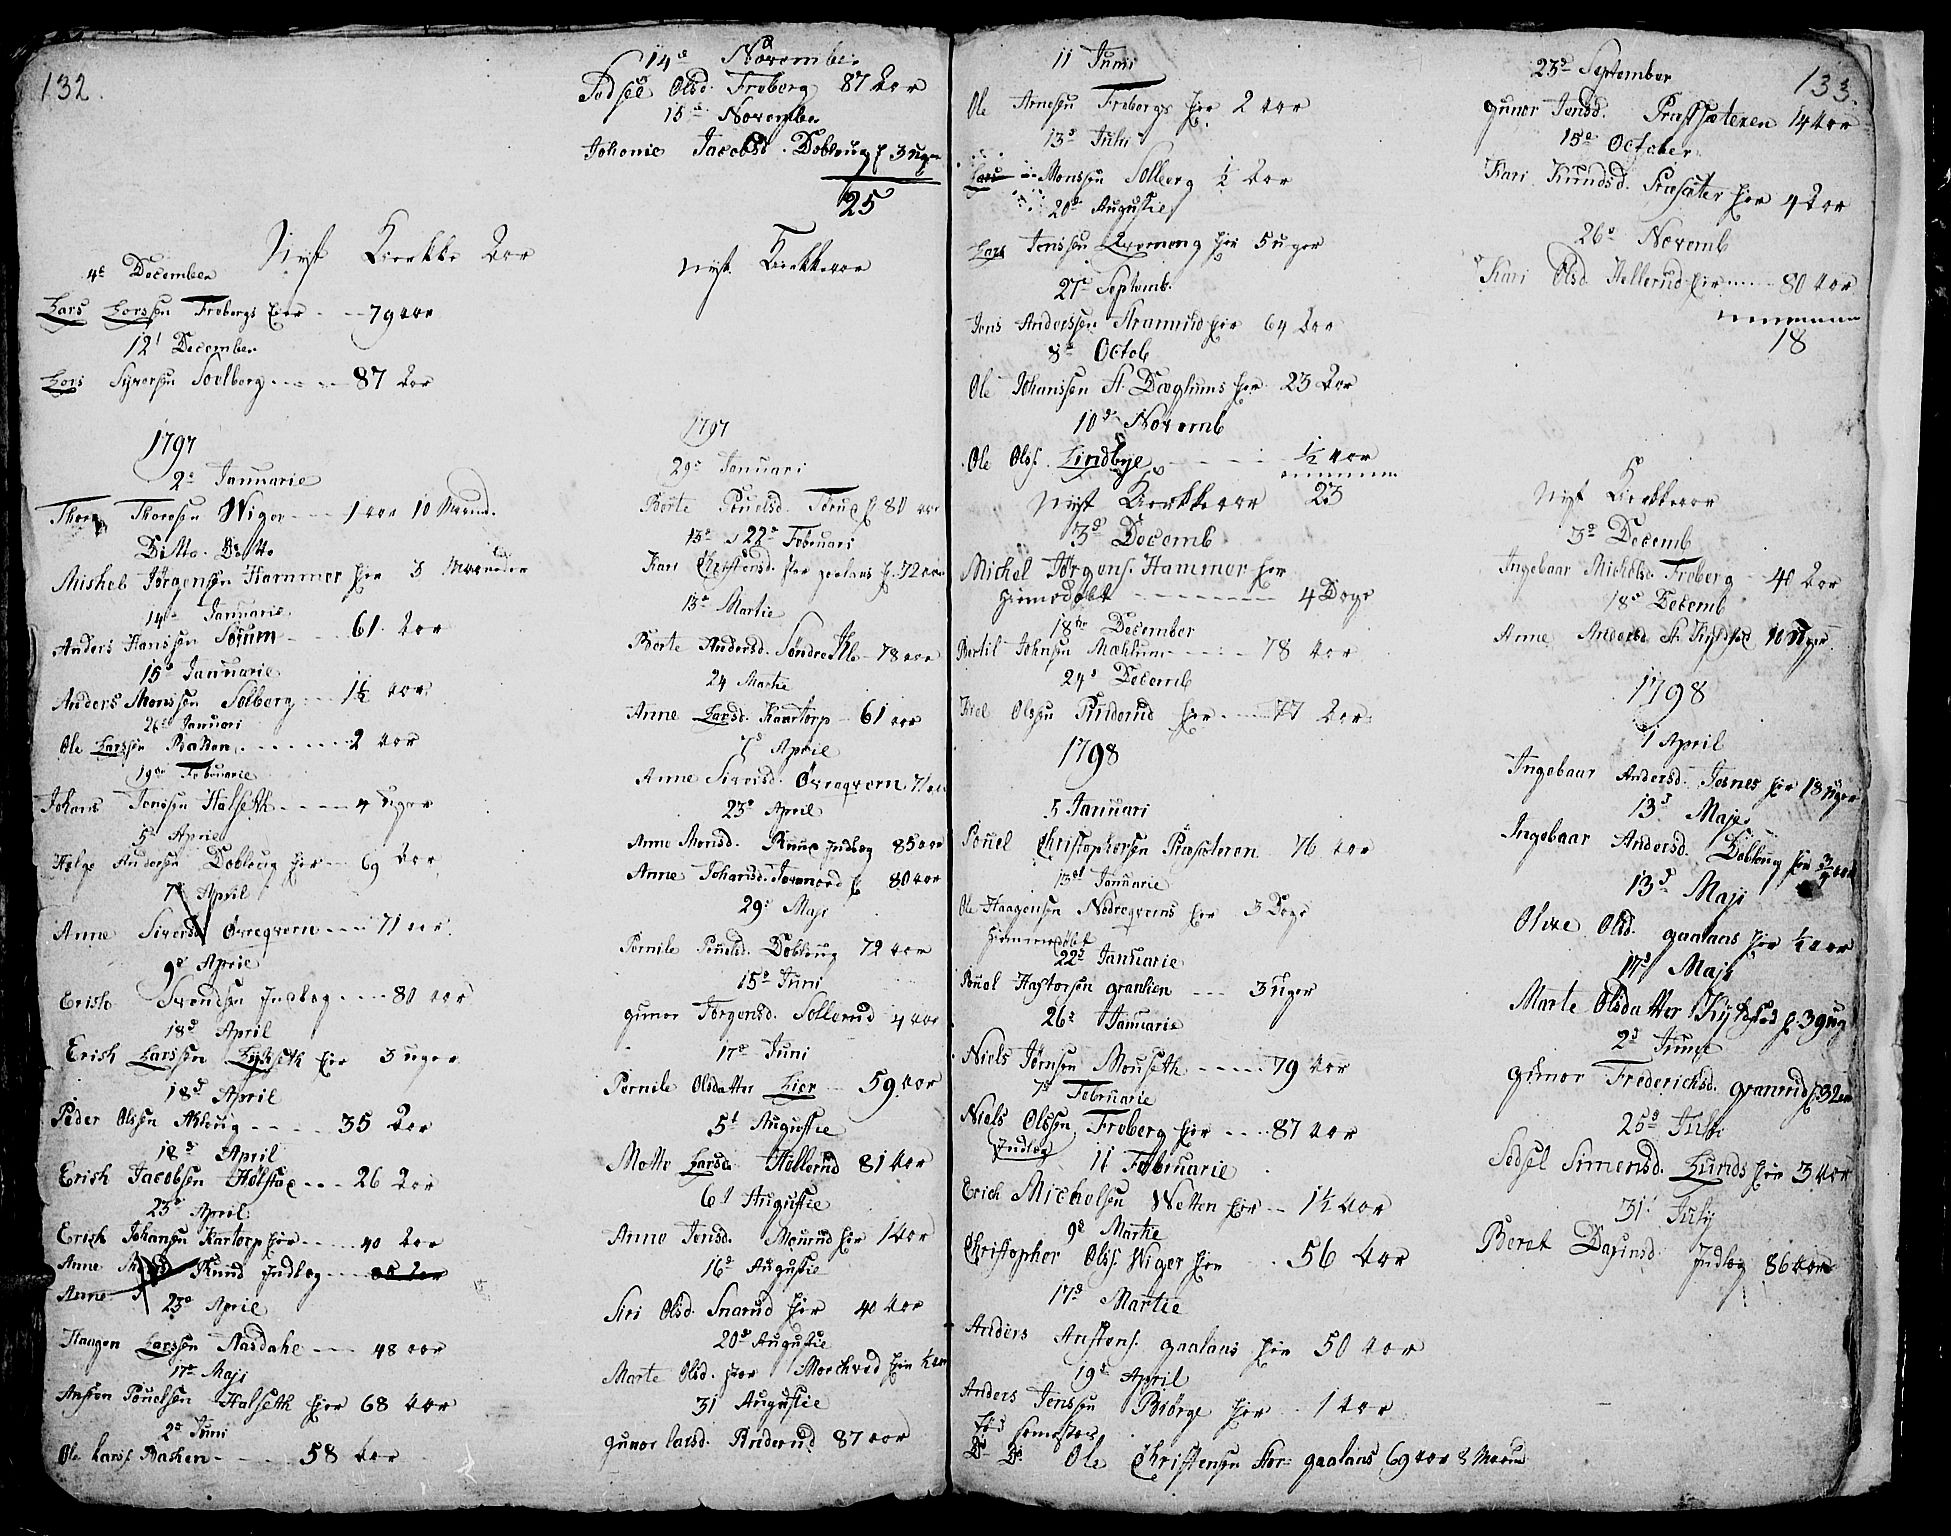 132.
4de December
Lars Larssøn Frobergs Eier - - 79 aar
12t December
Lars Syversøn Soelberg - - - - 87 Aar
Nyt Kirkke Aar
1797
2de Januarie
Thore Thoresøn Wiger - - - 1 aar 10 Maand.
Ditto. Ditto
Mickel Jørgensøn Hammer hier 3 Maaneder
14de Januarie
Anders Hanssøn Sørum - - - 61 Aar
15de Januarie
Anders Monssøn Solberg - - - 1½ aar
26de Januari
Ole Larssøn Bakken - - - - - - 2 aar
19de Februarie
Johans Jenssøn Halseth - - - - 4 uger
5de April
Helge Andersøn Dobloug hier - - 69 Aar
7de April
Anne Siversd. Øvreqvern - - - 71 aar.
9de April
Erich Svendsøn Indlæg - - - - 80 aar
18de April
Erich Larssøn Lykseth hier 3 uger
18de April
Peder Olssøn Alsloug - - - - 35 Aar
18de April
Erich Jacobsøn Hølstad - - - 26 Aar
23de April
Erich Johansøn Kartorp hier - - - 40 Aar
Anne Indlæg
Anne
23de April
Haagen Larssøn Aasdahl - - - 48 aar
17de Maji
Anfion Pouelsøn Halseth hier 68 Aar
2de Juni
Ole Larss. Bakken - - - - - 58 Aar
14de November
Sedsel Olsd. Froberg 87 Aar
15de November
Johanne Jacobsd. Dobloug h 3 uger
25
Nyt Kirkkeaar
1797
29de Januari
Berte Pouelsd. 80 aar
13de 22de Februari
Kari Christensd. Stor Gaalaas h. 72 aar
13de Martie
Berte Andersd. Søndre Alb - 78 aar
24 Martie
Anne Larsd. Kaartorp - 61 aar
7de April
Anne Siversd. Øvreqvern 71 aar
23de April
Anne Monsd. Indlæg 85 aar
Anne Johansd. h 80 aar
29de Maji
Pernile Pouelsd. Dobloug 72 aar
15de Juni
Gunor Jørgensd. Sollerud 4 aar
17de Juni
Pernile Olsdatter Lier - - 59 aar
5t Augustie
Mette Larsd. Hellerud 81 Aar
6t Augustie
Anne Jensd. Mourud hier 1 Aar
16de Augustie
Siri Olsd. Snarud hier 40 Aar
20de Augustie
Marte Olsd. Stor Morkved hier ½ aar
31 Augustie
Gunor Larsd. Rinderud 87 aar
11 Juni
Ole Arnesøn Frobergs hier 2 aar
13de Juli
Lars Monssøn Solberg ½ Aar
20de Augustie
Lars Jenssøn hier 5 uger
27de Septemb.
Jens Anderssøn hier 64 Aar
8de Octob
Ole Johanssøn St. Dæglums hier 23 Aar
10de Novemb
Ole Olss. Lindbye - - - - - ½ aar
23
Nyt Kirkkeaar
3de Decemb
Michel Jørgens. Hammer hier
hiemedøbt - - - - - - 4 Dage
18de December
Bertil Johnsøn Mæhlum - - - - 78 aar
24de Decemb
Kiel Olssøn Rinderud hier - - - 77 Aar
1798
5 Januari
Pouel Christophersøn Præsteteren 76 aar
13de Januarie
Ole Haagensøn Nedreqverns hier 3 Dage
hiemmedøbt
22de Januarie
Pouel Hastorsøn granlien - - - 3 uger
26de Januarie
Niels Jørnsøn Mouseth - - - - 79 aar
7de Februarie
Niels Olssøn Froberg hier - - - 87 aar
Indlæg
11 Februarie
Erich Michelsøn Wetten hier - - 1½ Aar
9de Martie
Christopher Olss. Wiger hier - 56 Aar
17de Martie
Anders Anstens. gaalaas hier 50 Aar
19de April
Anders Jenssøn Biørge hier - 1 Aar
Ds Ds Ole Christensøn Stor gaalaas 69 aar 8 Maand
133.
23de September
Gunor Jensd. Præstsæteren 14 aar
15de October
Kari Knudsd. Præsæter hier 4 Aar
26de Novemb
Kari Olsd. Hellerud hier - - - 80 aar
18
Nyt Kirkkeaar
3de Decemb
Ingebaar Michelsd. Froberg - 40 Aar
18de Decemb
Anne Andersd. St. Kyhstad 10 Uger
1798
1 April
Ingebaar Andersd. Jesnes hier 18 uger
13de Maji
Ingebaar Andersd. Dobloug hier ¾ aar
13de Maji
Olive Olsd. gaalaas hier ½ aar
17de Maji
Marte Olsdatter Kyhstad h. 39 ug
2de Junie
Gunor Frederichsd. granrud h. 32 aar
25de Juli
Sedsel Simensd. Lunds hier 3 aar
31t July
Beret Dafinsd. Indlæg 86 aar